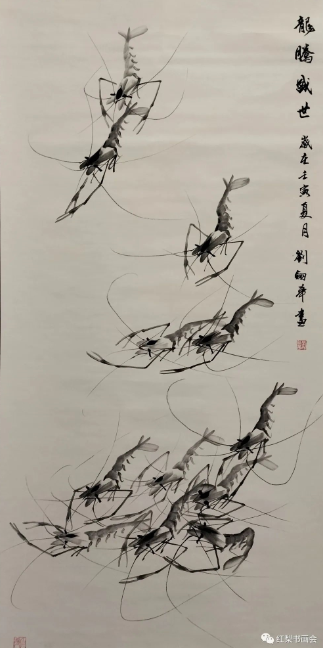 龍騰盛世 歲在壬寅夏月 劉華畫
红梨书画会